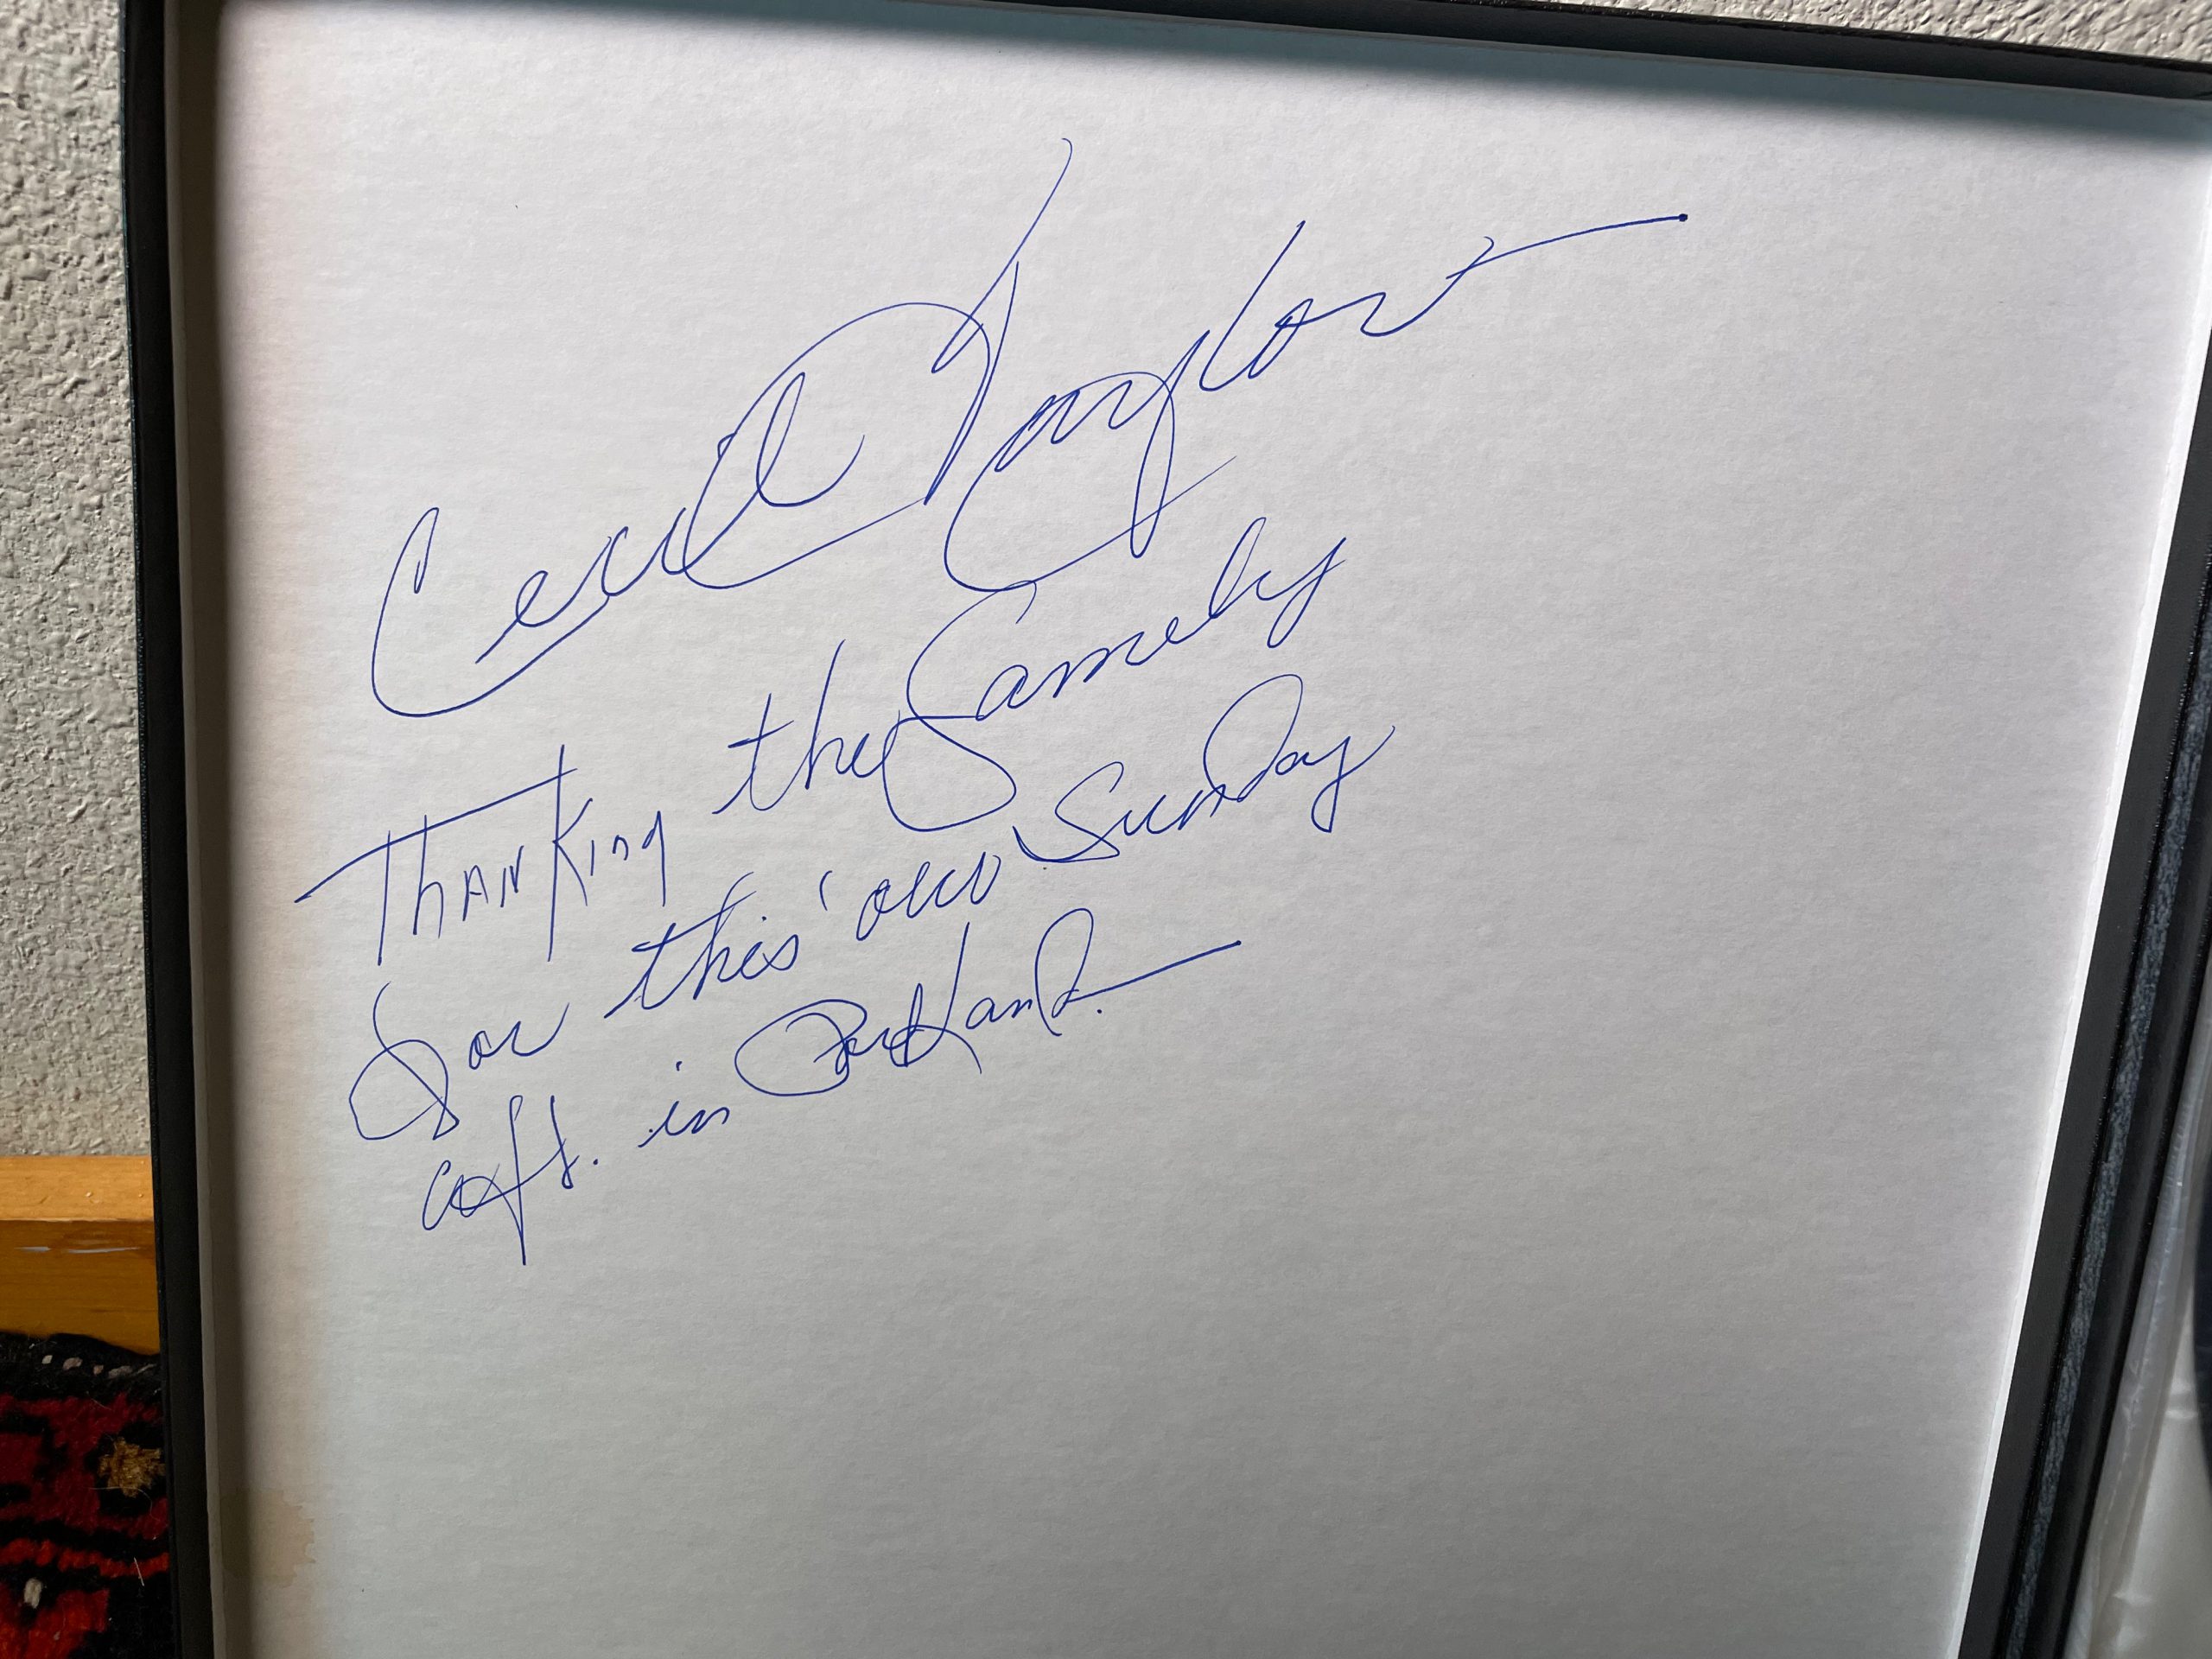 Cecil Taylor
Thanking the family
for this 'our Sunday
aft. in Portland.